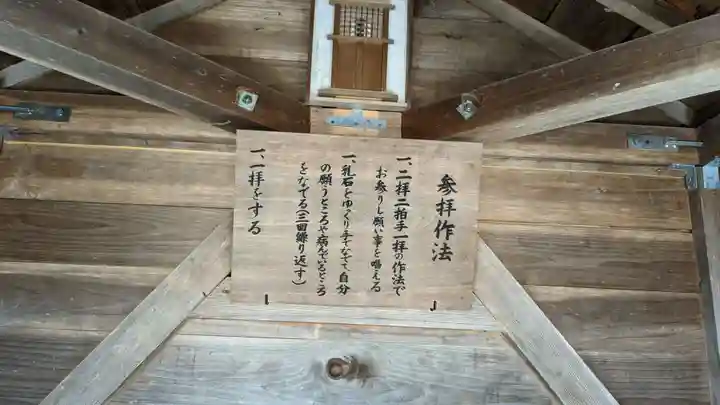 参拝作法
一、二拝二拍手一拝の作法で
お参りし願い事を唱える
一、乳石をゆっくり手でなでて自分
の願うところや病んでいるところ
をなでる(三回繰り返す)
一、一拝をする